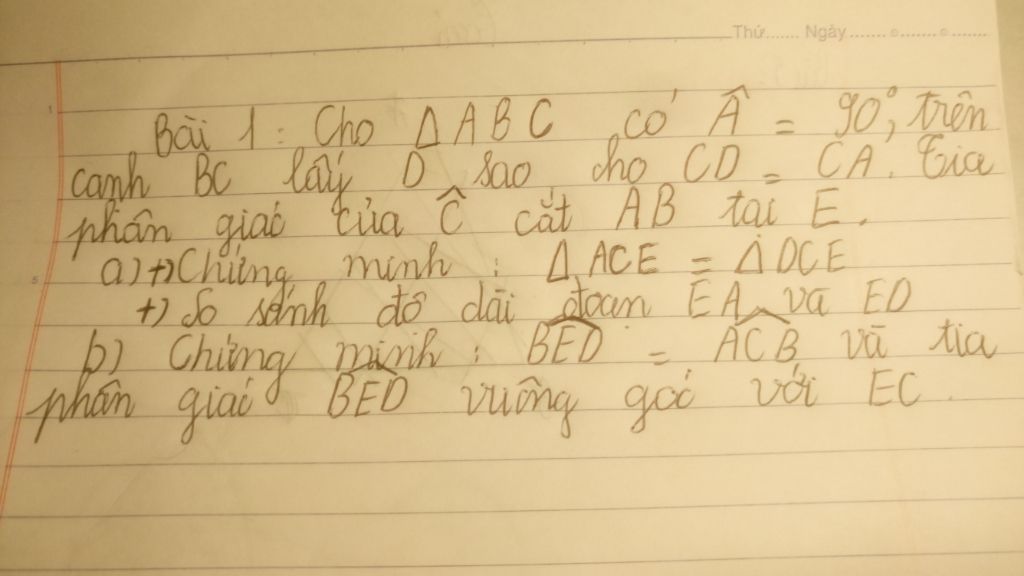 Thứ....... Ngày ....... o ....... o .......
Bài 1 : Cho ΔABC có Â = 90°, trên
cạnh BC lấy D sao cho CD = CA. Tia
phân giác của Ĉ cắt AB tại E.
a) +) Chứng minh : ΔACE = ΔDCE
+) So sánh độ dài đoạn EA và ED
b) Chứng minh : \widehat{BED} = \widehat{ACB} và tia
phân giác \widehat{BED} vuông góc với EC.